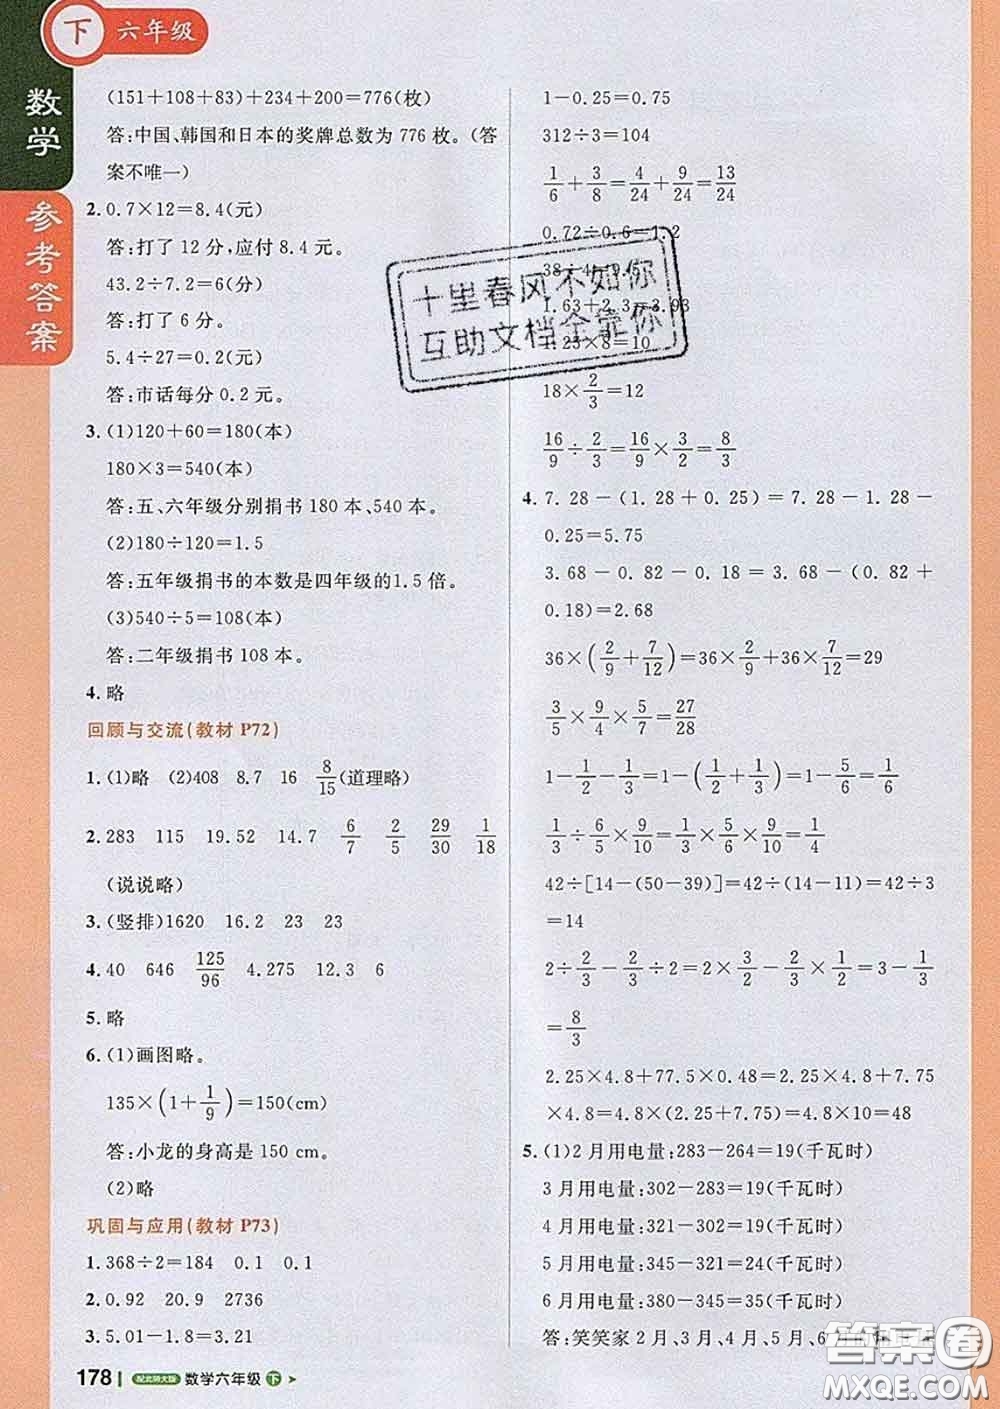 下 六年级
数学
参考答案
(151+108+83)+234+200=776(枚)
答:中国、韩国和日本的奖牌总数为 776 枚。(答
案不唯一)
2. 0.7×12=8.4(元)
答:打了 12 分,应付 8.4 元。
43.2÷7.2=6(分)
答:打了 6 分。
5.4÷27=0.2(元)
答:市话每分 0.2 元。
3. (1)120+60=180(本)
180×3=540(本)
答:五、六年级分别捐书 180 本、540 本。
(2)180÷120=1.5
答:五年级捐书的本数是四年级的1.5 倍。
(3)540÷5=108(本)
答:二年级捐书 108 本。
4. 略
回顾与交流(教材 P72)
1. (1)略 (2)408 8.7 16 8/15(道理略)
2. 283 115 19.52 14.7 6/7 2/5 29/30 1/18
(说说略)
3. (竖排)1620 16.2 23 23
4. 40 646 125/96 4.275 12.3 6
5. 略
6. (1)画图略。
135×(1+1/9)=150(cm)
答:小龙的身高是 150 cm。
(2)略
巩固与应用(教材 P73)
1. 368÷2=184 0.1 0.1
2. 0.92 20.9 2736
3. 5.01-1.8=3.21
1-0.25=0.75
312÷3=104
1/6+3/8=4/24+9/24=13/24
0.72÷0.6=1.2
38÷4=9.5
1.63+2.3=3.93
1.25×8=10
18×2/3=12
16/9÷2/3=16/9×3/2=8/3
4. 7.28-(1.28+0.25)=7.28-1.28-
0.25=5.75
3.68-0.82-0.18=3.68-(0.82+
0.18)=2.68
36×(2/9+7/12)=36×2/9+36×7/12=29
3/5×9/4×5/7=27/28
1-1/2-1/3=1-(1/2+1/3)=1-5/6=1/6
1/3÷6/5×9/10=1/3×5/6×9/10=1/4
42÷[14-(50-39)]=42÷(14-11)=42÷3
=14
2÷2/3-2/3÷2=2×3/2-2/3×1/2=3-1/3
=8/3
2.25×4.8+77.5×0.48=2.25×4.8+7.75
×4.8=4.8×(2.25+7.75)=4.8×10=48
5. (1)2 月用电量:283-264=19(千瓦时)
3 月用电量:302-283=19(千瓦时)
4 月用电量:321-302=19(千瓦时)
5 月用电量:345-321=24(千瓦时)
6 月用电量:380-345=35(千瓦时)
答:笑笑家 2 月、3 月、4 月、5 月、6
十里春风不如你
互助文档全靠你
178 配北师大版 数学六年级 下
答案卷
MXQE.COM